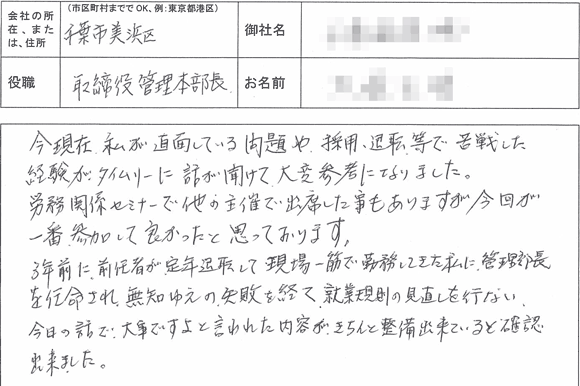 会社の所在、または、住所
（市区町村まででOK、例：東京都港区）
千葉市美浜区
御社名
役職
取締役管理本部長
お名前
今現在、私が直面している問題や、採用、退職、等で苦戦した
経験がタイムリーに話が聞けて大変参考になりました。
労務関係セミナーで他の主催で出席した事もありますが今回が
一番参加して良かったと思っております。
3年前に、前任者が定年退職して現場一筋で勤務してきた私に、管理部長
を任命され、無知ゆえの失敗を経て、就業規則の見直しを行ない、
今日の話で、大事ですよと言われた内容が、きちんと整備出来ていると確認
出来ました。